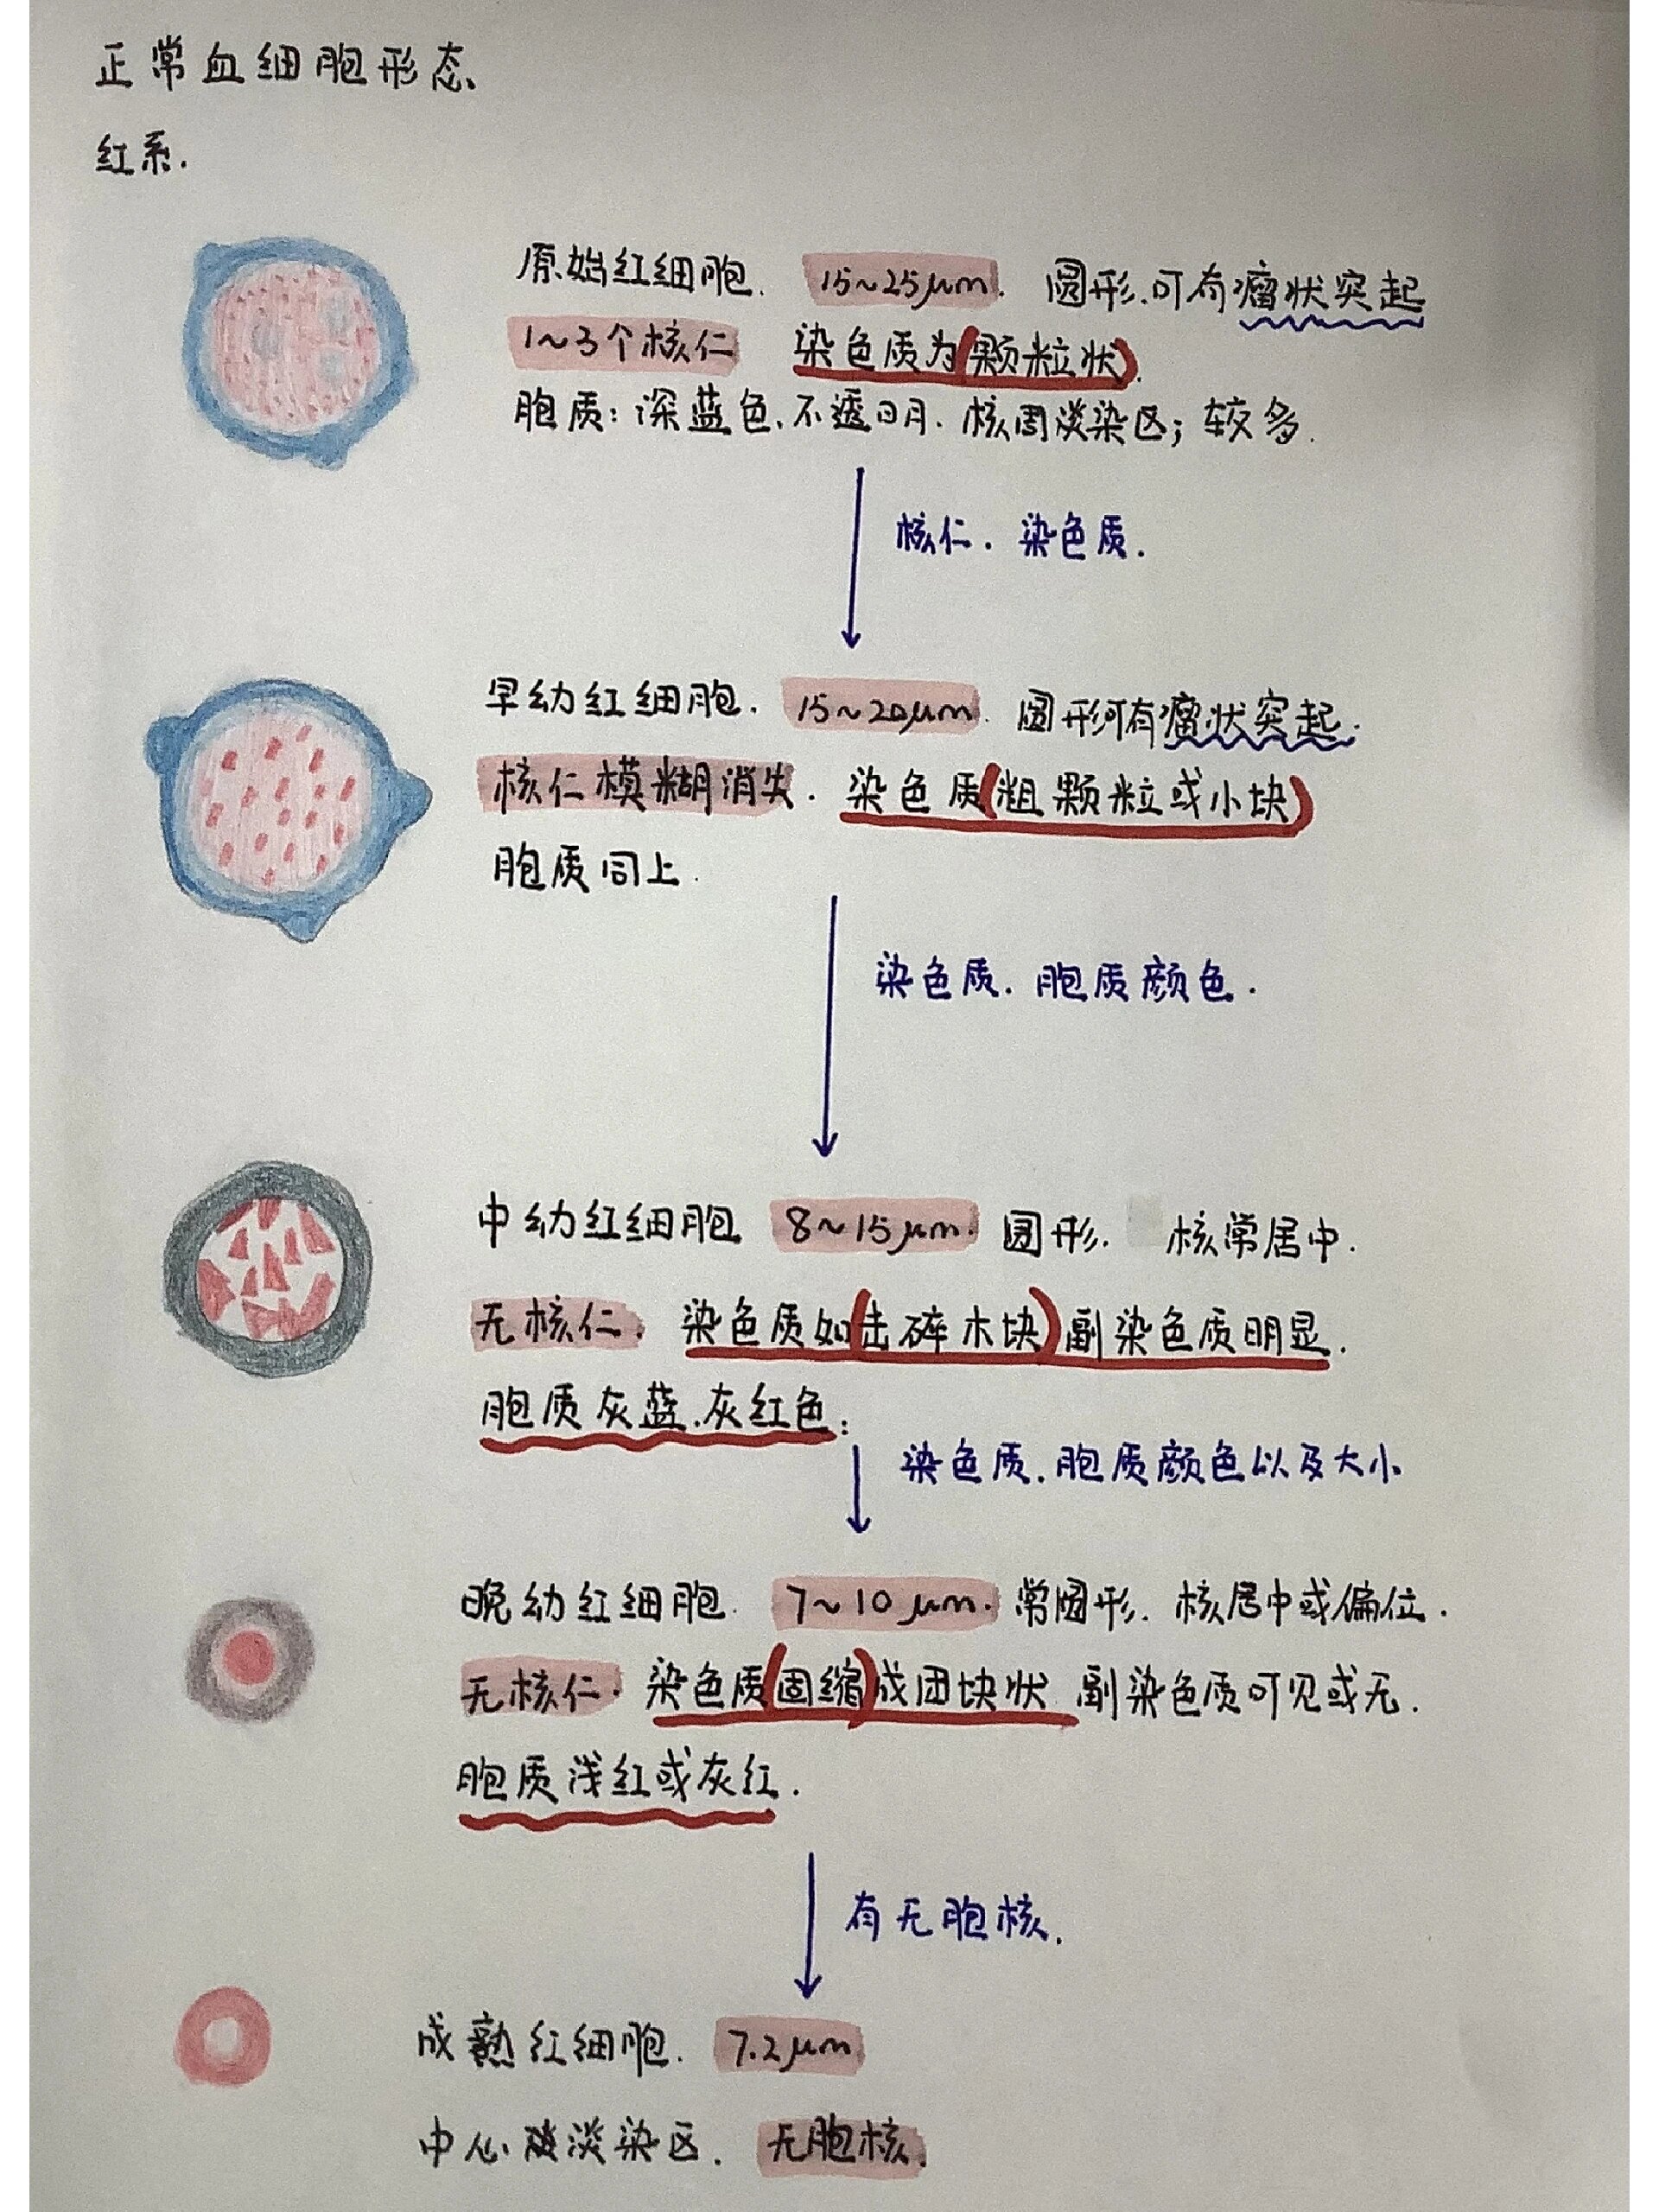 正常血细胞形态
红系.
原始红细胞. 15~25μm. 圆形.可有瘤状突起
1~3个核仁 染色质为(颗粒状).
胞质:深蓝色.不透明.核周淡染区;较多.
核仁.染色质.
早幼红细胞. 15~20μm. 圆形可有瘤状突起.
核仁模糊消失. 染色质(粗颗粒或小块)
胞质同上.
染色质.胞质颜色.
中幼红细胞 8~15μm. 圆形. 核常居中.
无核仁. 染色质如(击碎木块)副染色质明显.
胞质灰蓝.灰红色;
染色质.胞质颜色以及大小
晚幼红细胞. 7~10μm. 常圆形. 核居中或偏位.
无核仁. 染色质(固缩)成团块状 副染色质可见或无.
胞质浅红或灰红.
有无胞核.
成熟红细胞. 7.2μm
中心淡染区. 无胞核.